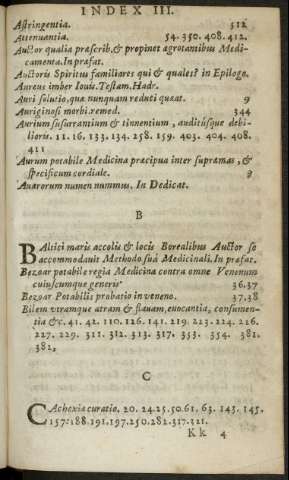 INDEX III.
Astringentia. 512
Attenuantia. 54. 350. 408. 412.
Auctor qualia præscrib. & propinet agrotantibus Medi-
camenta. In præfat.
Auctoris Spiritus familiares qui & quales? in Epiloga.
Aureus imber Iovis. Testam. Hadr.
Auri solutio, qua nunquam reduci queat. 9
Auriginosi morbi. remed. 344
Aurium susurrantium & tinnentium, auditúsque debi-
lioris. 11. 16. 133. 134. 258. 159. 403. 404. 408.
411
Aurum potabile Medicina præcipua inter supramas, &
specificum cordiale. 8
Avarorum numen nummus. In Dedicat.
B
BAltici maris accolis & locis Borealibus Auctor se
accommodavit Methodo suâ Medicinali. In præfat.
Bezoar potabile regia Medicina contra omne Venenum
cuiuscumque generis 36. 37
Bezoar Potabilis probatio in veneno. 37. 38
Bilem utramque atram & flavam, enocantia, consumen-
tia &c. 41. 42. 110. 126. 141. 219. 223. 224. 226.
227. 229. 311. 312. 313. 317. 353. 354. 381.
382,
C
CAchexia curatio. 20. 24. 25. 50. 61. 63. 143. 145.
157. 188. 191. 197. 250. 282. 317. 321.
Kk 4